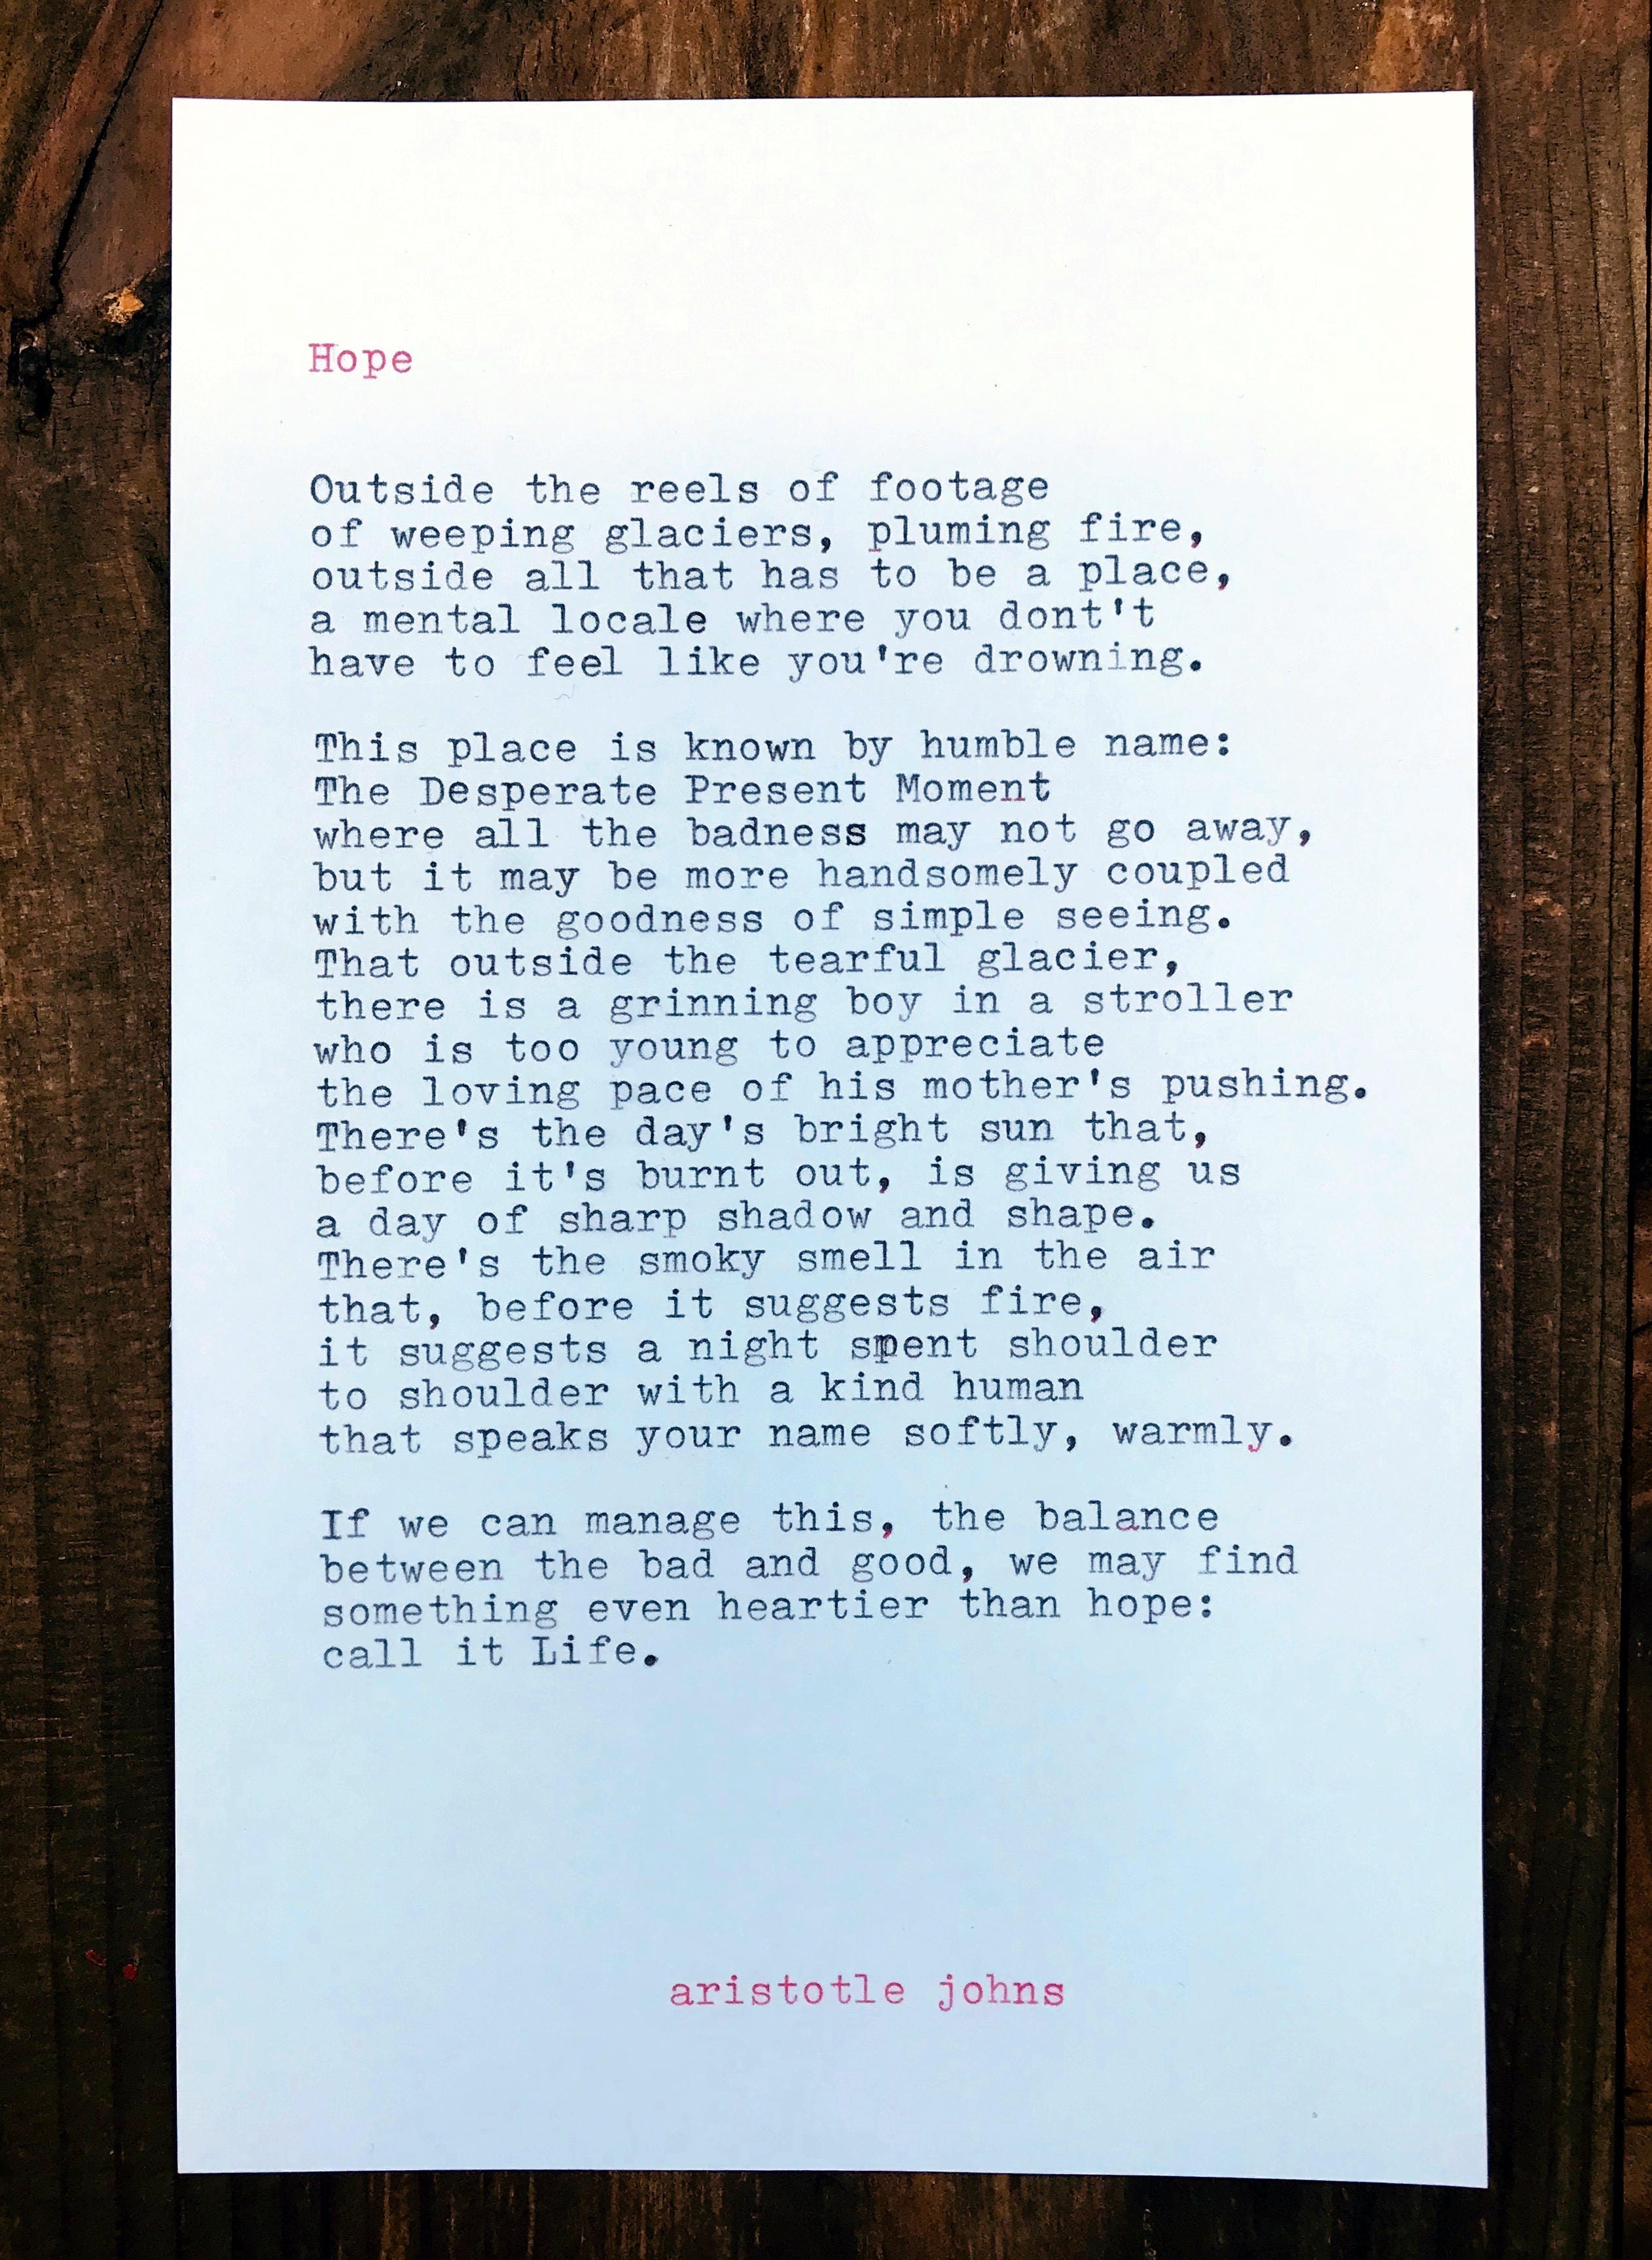 Hope
Outside the reels of footage
of weeping glaciers, pluming fire,
outside all that has to be a place,
a mental locale where you dont't
have to feel like you're drowning.
This place is known by humble name:
The Desperate Present Moment
where all the badness may not go away,
but it may be more handsomely coupled
with the goodness of simple seeing.
That outside the tearful glacier,
there is a grinning boy in a stroller
who is too young to appreciate
the loving pace of his mother's pushing.
There's the day's bright sun that,
before it's burnt out, is giving us
a day of sharp shadow and shape.
There's the smoky smell in the air
that, before it suggests fire,
it suggests a night spent shoulder
to shoulder with a kind human
that speaks your name softly, warmly.
If we can manage this, the balance
between the bad and good, we may find
something even heartier than hope:
call it Life.
aristotle johns